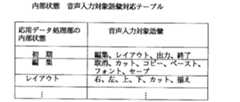 内部状態　音声入力対象語彙対応テーブル
応用データ処理部の
内部状態
音声入力対象語彙
初　期
編集、レイアウト、出力、終了
編　集
取消、カット、コピー、ペースト、
フォント、セーブ
レイアウト
右、左、上、下、カット、揃え